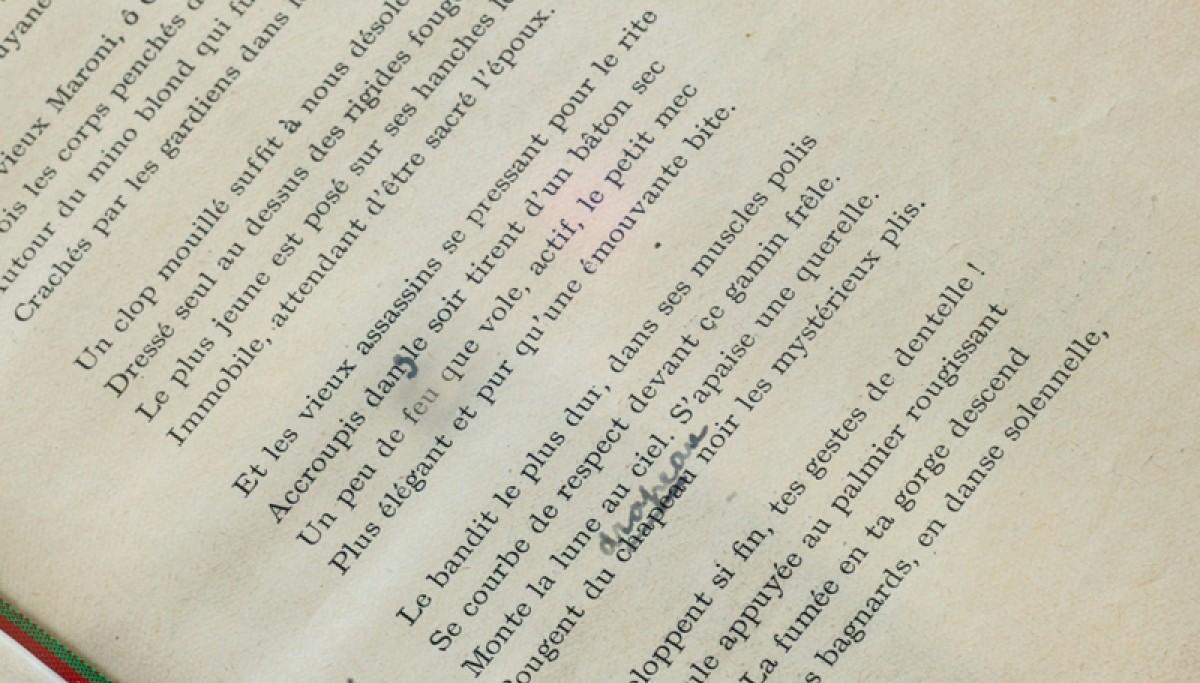 uyane
vieux Maroni, ô
les corps penchés
autour du mino blond qui
Crachés par les gardiens dans
Un clop mouillé suffit à nous
Dressé seul au dessus des rigides
Le plus jeune est posé sur ses hanches
Immobile, attendant d'être sacré l'époux.
Et les vieux assassins se pressant pour le rite
Accroupis dans le soir tirent d'un bâton sec
Un peu de feu que vole, actif, le petit mec
Plus élégant et pur qu'une émouvante bite.
Le bandit le plus dur, dans ses muscles polis
Se courbe de respect devant ce gamin frêle.
Monte la lune au ciel. S'apaise une querelle.
drapeau
Bougent du chapeau noir les mystérieux plis.
loppent si fin, tes gestes de dentelle !
ule appuyée au palmier rougissant
La fumée en ta gorge descend
s bagnards, en danse solennelle,